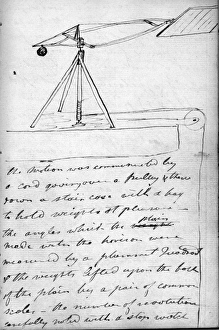 The motion was communicated by
a cord going over a pulley & thence
down a stair case with a bag
to hold weights at pleasure –
the angles which the plain
made with the horizon were
measured by a pleasant Quadrant
& the weights lifted upon the back
of the plain by a pair of common
scales – the number of revolutions
carefully noted with a stop watch